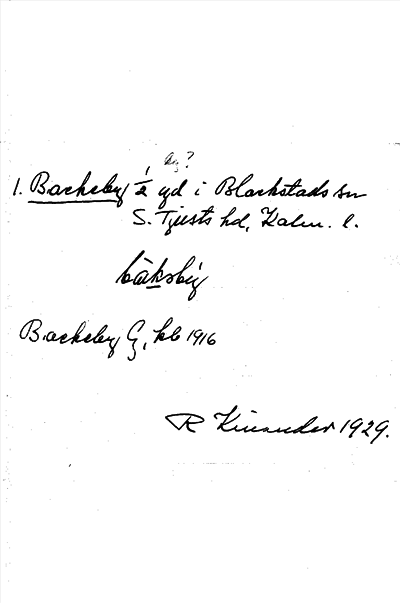 1. Backeby ½ gd i Blackstads sn
S. Tjusts hd, Kalm. l.
Backeby G, kb 1916
R Kinander 1929.